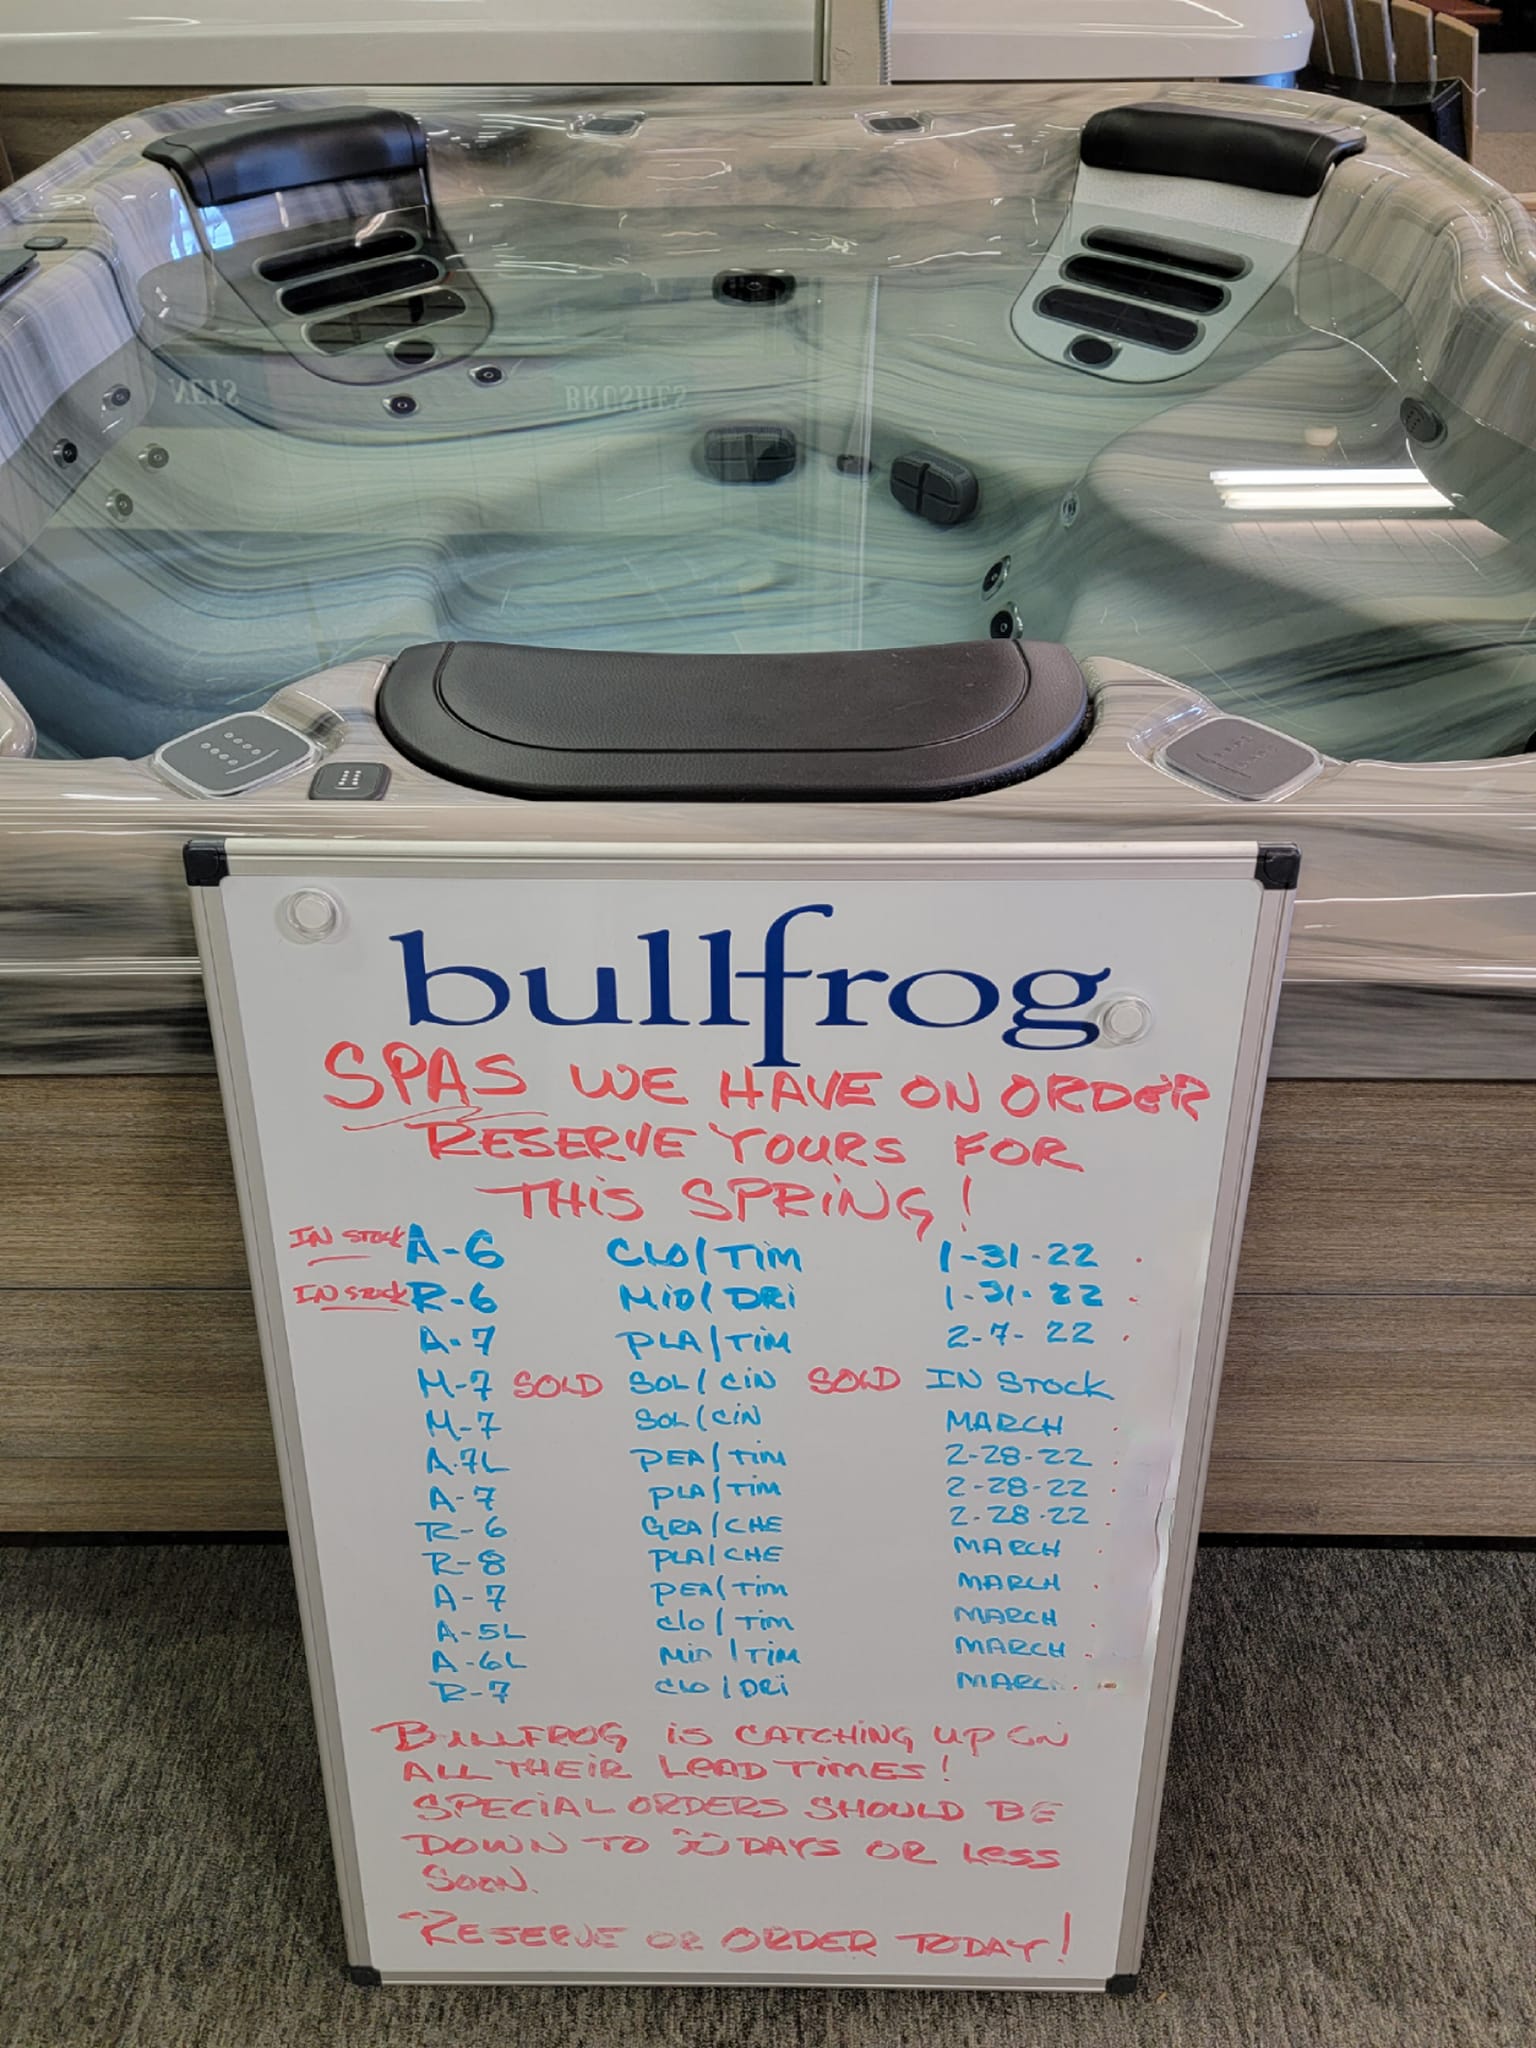 NETS BRUSHES
bullfrog
SPAS WE HAVE ON ORDER
RESERVE YOURS FOR
THIS SPRING!
IN STOCK A-6 CLO/TIM 1-31-22
IN STOCK R-6 MID/DRI 1-31-22
A-7 PLA/TIM 2-7-22
M-7 SOLD SOL/CIN SOLD IN STOCK
M-7 SOL/CIN MARCH
A-7L PEA/TIM 2-28-22
A-7 PLA/TIM 2-28-22
R-6 GRA/CHE 2-28-22
R-8 PLA/CHE MARCH
A-7 PEA/TIM MARCH
A-5L CLO/TIM MARCH
A-6L MID/TIM MARCH
R-7 CLO/DRI MARCH
BULLFROG IS CATCHING UP ON
ALL THEIR LEAD TIMES!
SPECIAL ORDERS SHOULD BE
DOWN TO DAYS OR LESS
SOON.
RESERVE OR ORDER TODAY!